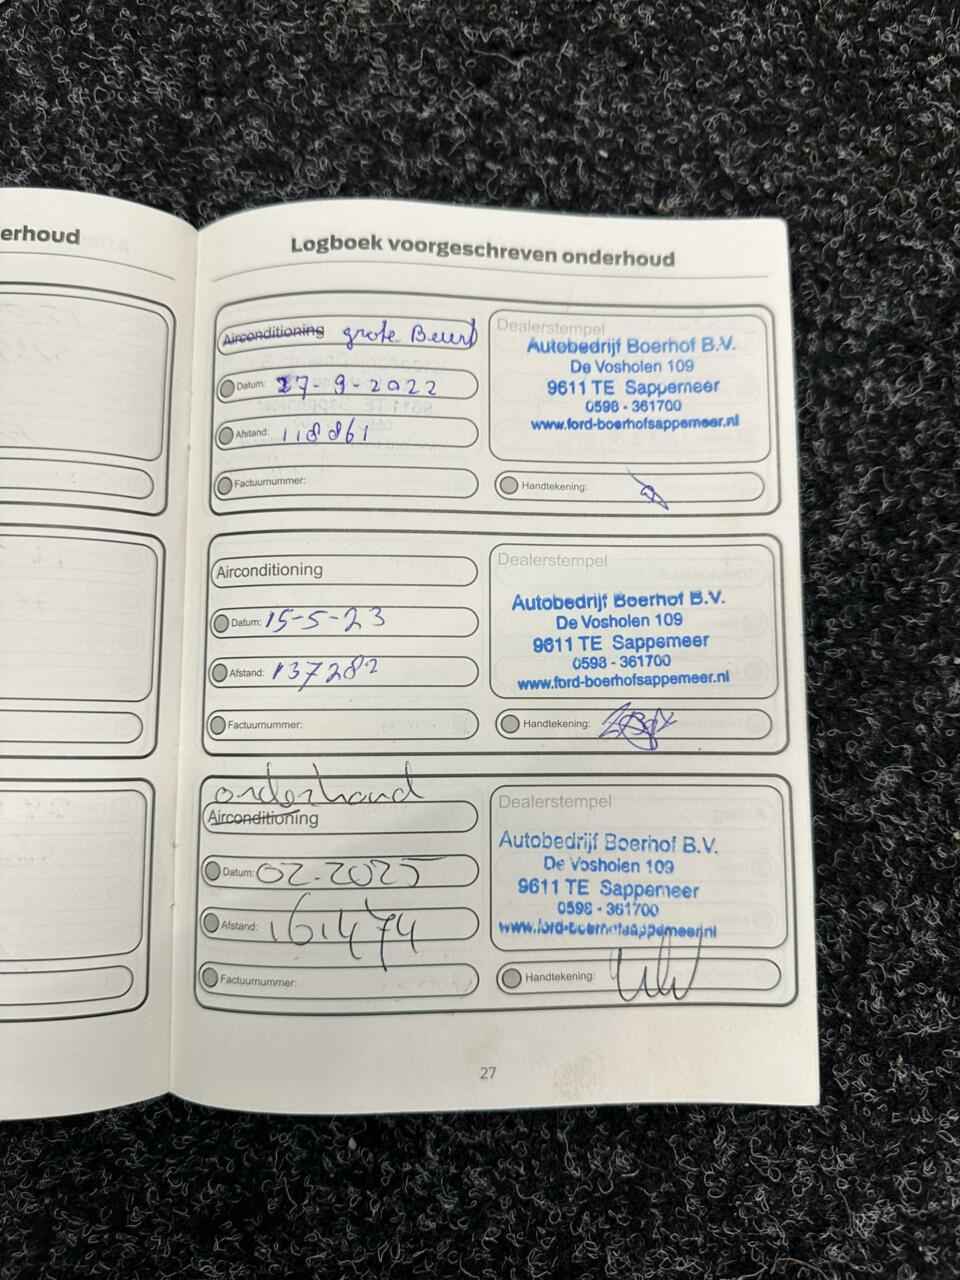 erhoud
Logboek voorgeschreven onderhoud
Airconditioning grote Beurt
Datum: 27-9-2022
Afstand: 118861
Factuurnummer:
Dealerstempel
Autobedrijf Boerhof B.V.
De Vosholen 109
9611 TE Sappemeer
0598 - 361700
www.ford-boerhofsappemeer.nl
Handtekening:
Airconditioning
Datum: 15-5-23
Afstand: 137282
Factuurnummer:
Dealerstempel
Autobedrijf Boerhof B.V.
De Vosholen 109
9611 TE Sappemeer
0598 - 361700
www.ford-boerhofsappemeer.nl
Handtekening:
onderhoud
Airconditioning
Datum: 02-2025
Afstand: 161474
Factuurnummer:
Dealerstempel
Autobedrijf Boerhof B.V.
De Vosholen 109
9611 TE Sappemeer
0598 - 361700
www.ford-boerhofsappemeer.nl
Handtekening:
27